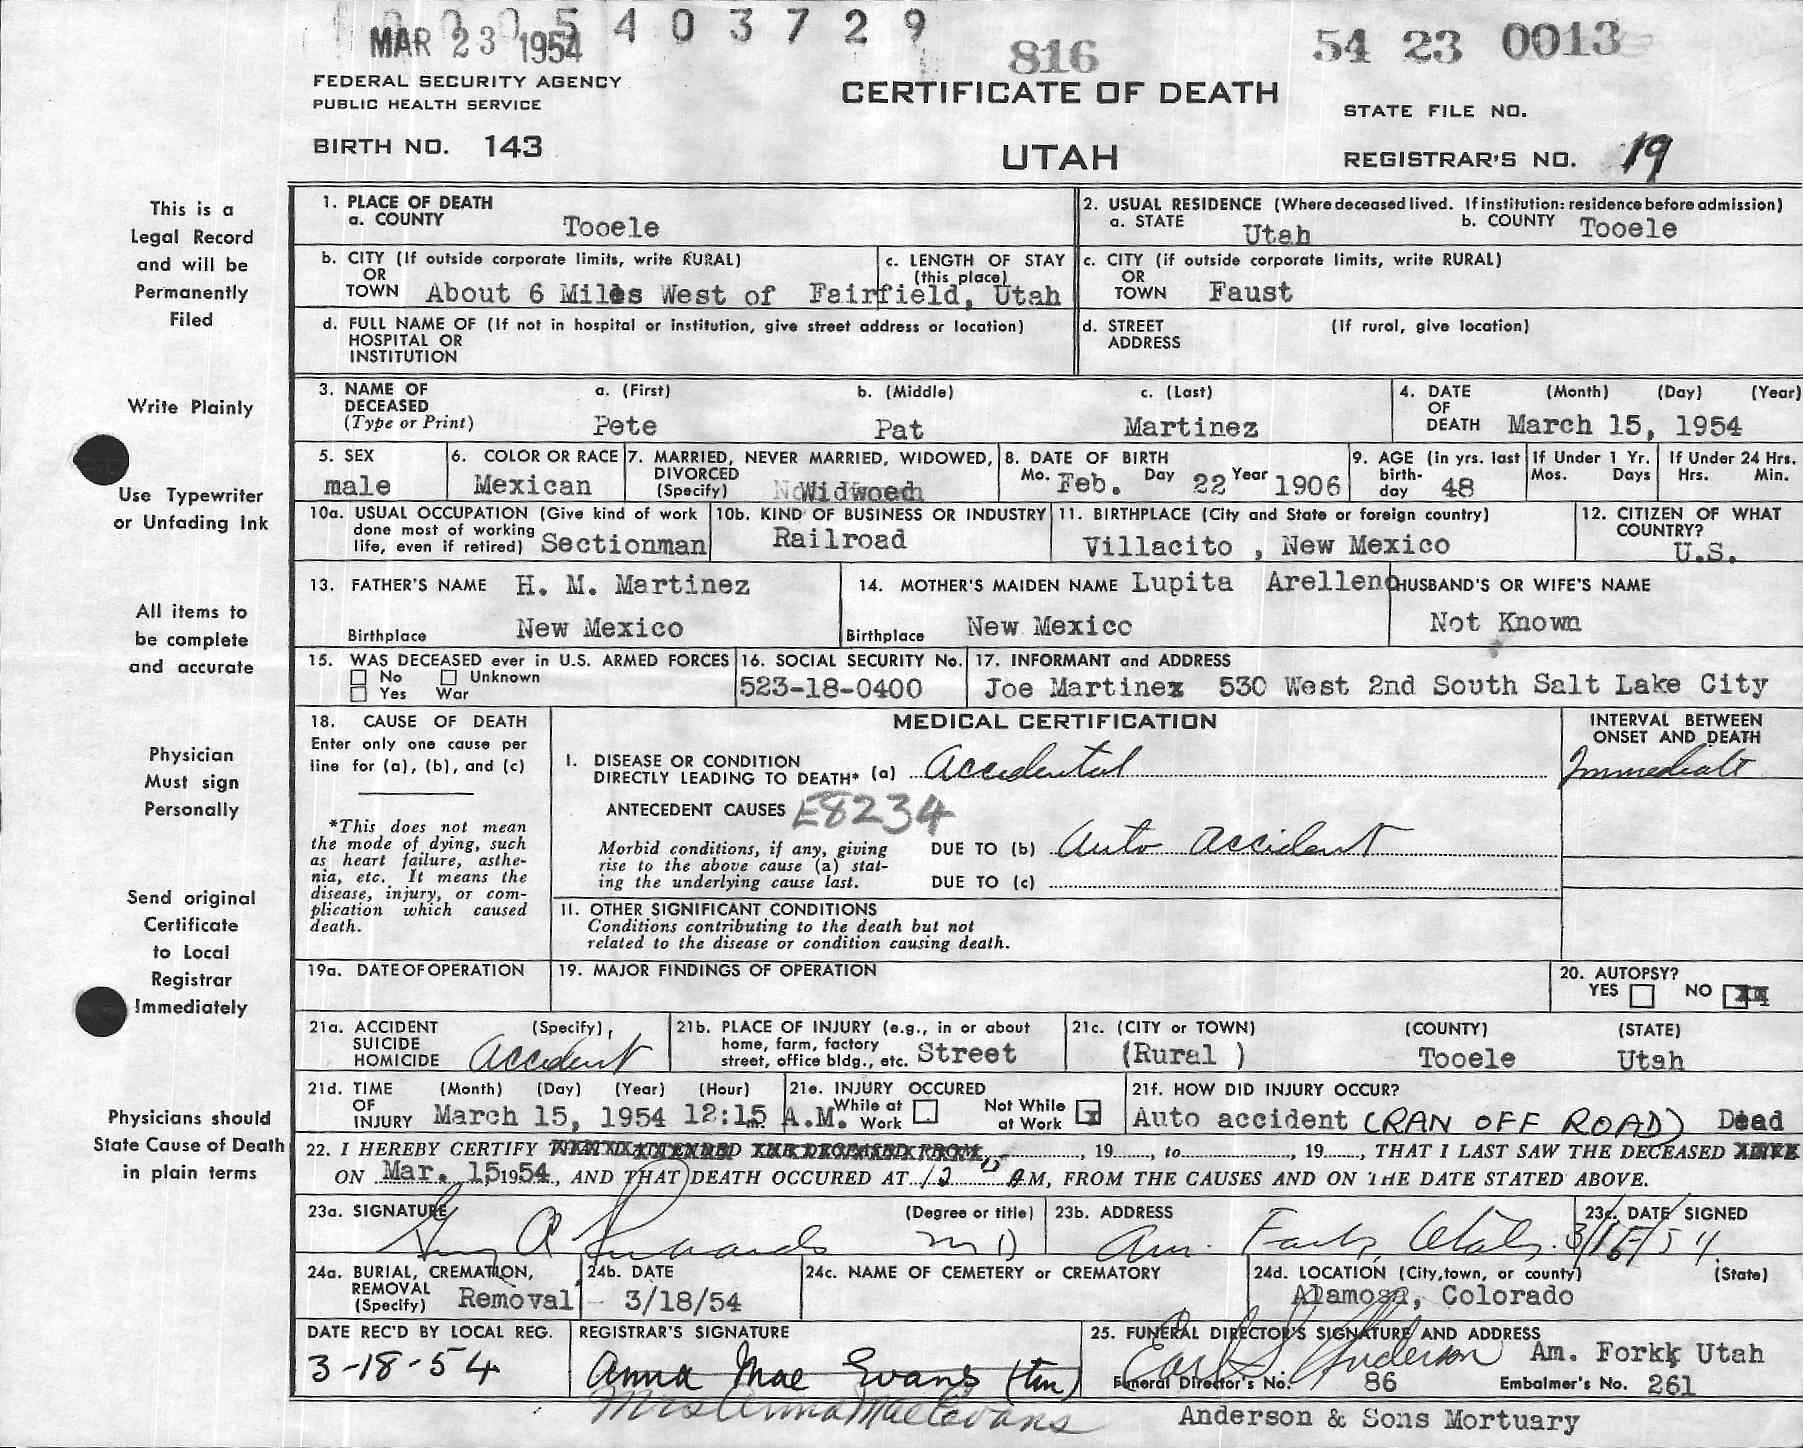 5 4 0 3 7 2 9
MAR 23 1954
816
54 23 0013
FEDERAL SECURITY AGENCY
PUBLIC HEALTH SERVICE
CERTIFICATE OF DEATH
STATE FILE NO.
BIRTH NO. 143
UTAH
REGISTRAR'S NO. 19
This is a
Legal Record
and will be
Permanently
Filed
Write Plainly
Use Typewriter
or Unfading Ink
All items to
be complete
and accurate
Physician
Must sign
Personally
Send original
Certificate
to Local
Registrar
Immediately
Physicians should
State Cause of Death
in plain terms
1. PLACE OF DEATH
a. COUNTY Tooele
2. USUAL RESIDENCE (Where deceased lived. If institution: residence before admission)
a. STATE Utah b. COUNTY Tooele
b. CITY (If outside corporate limits, write RURAL)
OR
TOWN About 6 Miles West of Fairfield, Utah
c. LENGTH OF STAY
(this place)
c. CITY (if outside corporate limits, write RURAL)
OR
TOWN Faust
d. FULL NAME OF (If not in hospital or institution, give street address or location)
HOSPITAL OR
INSTITUTION
d. STREET (If rural, give location)
ADDRESS
3. NAME OF a. (First) b. (Middle) c. (Last)
DECEASED
(Type or Print) Pete Pat Martinez
4. DATE (Month) (Day) (Year)
OF
DEATH March 15, 1954
5. SEX
male
6. COLOR OR RACE
Mexican
7. MARRIED, NEVER MARRIED, WIDOWED,
DIVORCED
(Specify) Widwoed
8. DATE OF BIRTH
Mo. Feb. Day 22 Year 1906
9. AGE (in yrs. last
birth-
day 48
If Under 1 Yr.
Mos. Days
If Under 24 Hrs.
Hrs. Min.
10a. USUAL OCCUPATION (Give kind of work
done most of working
life, even if retired) Sectionman
10b. KIND OF BUSINESS OR INDUSTRY
Railroad
11. BIRTHPLACE (City and State or foreign country)
Villacito , New Mexico
12. CITIZEN OF WHAT
COUNTRY?
U.S.
13. FATHER'S NAME H. M. Martinez
Birthplace New Mexico
14. MOTHER'S MAIDEN NAME Lupita Arelleno
Birthplace New Mexico
HUSBAND'S OR WIFE'S NAME
Not Known
15. WAS DECEASED ever in U.S. ARMED FORCES
No Unknown
Yes War
16. SOCIAL SECURITY No.
523-18-0400
17. INFORMANT and ADDRESS
Joe Martinez 530 West 2nd South Salt Lake City
18. CAUSE OF DEATH
Enter only one cause per
line for (a), (b), and (c)
*This does not mean
the mode of dying, such
as heart failure, asthe-
nia, etc. It means the
disease, injury, or com-
plication which caused
death.
MEDICAL CERTIFICATION
INTERVAL BETWEEN
ONSET AND DEATH
I. DISEASE OR CONDITION
DIRECTLY LEADING TO DEATH* (a) Accidental
Immediate
ANTECEDENT CAUSES E8234
Morbid conditions, if any, giving
rise to the above cause (a) stat-
ing the underlying cause last.
DUE TO (b) Auto accident
DUE TO (c)
II. OTHER SIGNIFICANT CONDITIONS
Conditions contributing to the death but not
related to the disease or condition causing death.
19a. DATE OF OPERATION
19. MAJOR FINDINGS OF OPERATION
20. AUTOPSY?
YES NO XX
21a. ACCIDENT (Specify)
SUICIDE
HOMICIDE Accident
21b. PLACE OF INJURY (e.g., in or about
home, farm, factory
street, office bldg., etc. Street
21c. (CITY or TOWN) (COUNTY) (STATE)
(Rural ) Tooele Utah
21d. TIME (Month) (Day) (Year) (Hour)
OF
INJURY March 15, 1954 12:15 A.M.
21e. INJURY OCCURED
While at Work Not While at Work x
21f. HOW DID INJURY OCCUR?
Auto accident (RAN OFF ROAD) Dead
22. I HEREBY CERTIFY THAT I ATTENDED THE DECEASED FROM , 19 , to , 19 , THAT I LAST SAW THE DECEASED
ON Mar. 15 1954, AND THAT DEATH OCCURED AT 12 15 A M, FROM THE CAUSES AND ON THE DATE STATED ABOVE.
23a. SIGNATURE (Degree or title)
M D
23b. ADDRESS
Am. Fork, Utah.
23c. DATE SIGNED
3/15/54
24a. BURIAL, CREMATION,
REMOVAL
(Specify) Removal
24b. DATE
3/18/54
24c. NAME OF CEMETERY or CREMATORY
24d. LOCATION (City, town, or county) (State)
Alamosa, Colorado
DATE REC'D BY LOCAL REG.
3-18-54
REGISTRAR'S SIGNATURE
Anna Mae Evans
Mrs Anna Mae Evans
25. FUNERAL DIRECTOR'S SIGNATURE AND ADDRESS
Earl S. Anderson Am. Forkk Utah
Funeral Director's No. 86 Embalmer's No. 261
Anderson & Sons Mortuary